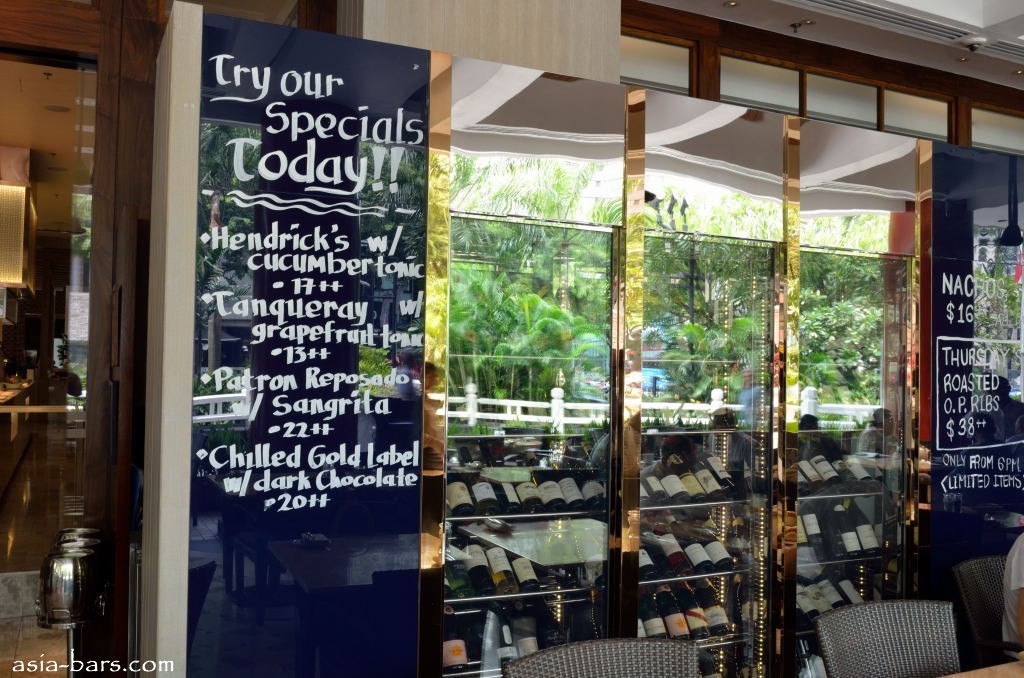 Try our
Specials
Today!!
•Hendrick's w/
cucumber tonic
• 17++
•Tanqueray w/
grapefruit tonic
•13++
•Patron Reposado
w/ Sangrita
•22++
•Chilled Gold Label
w/ dark Chocolate
•20++
NACHOS
$16
THURSDAY
ROASTED
O.P. RIBS
$38++
ONLY FROM 6PM
<LIMITED ITEMS>
asia-bars.com